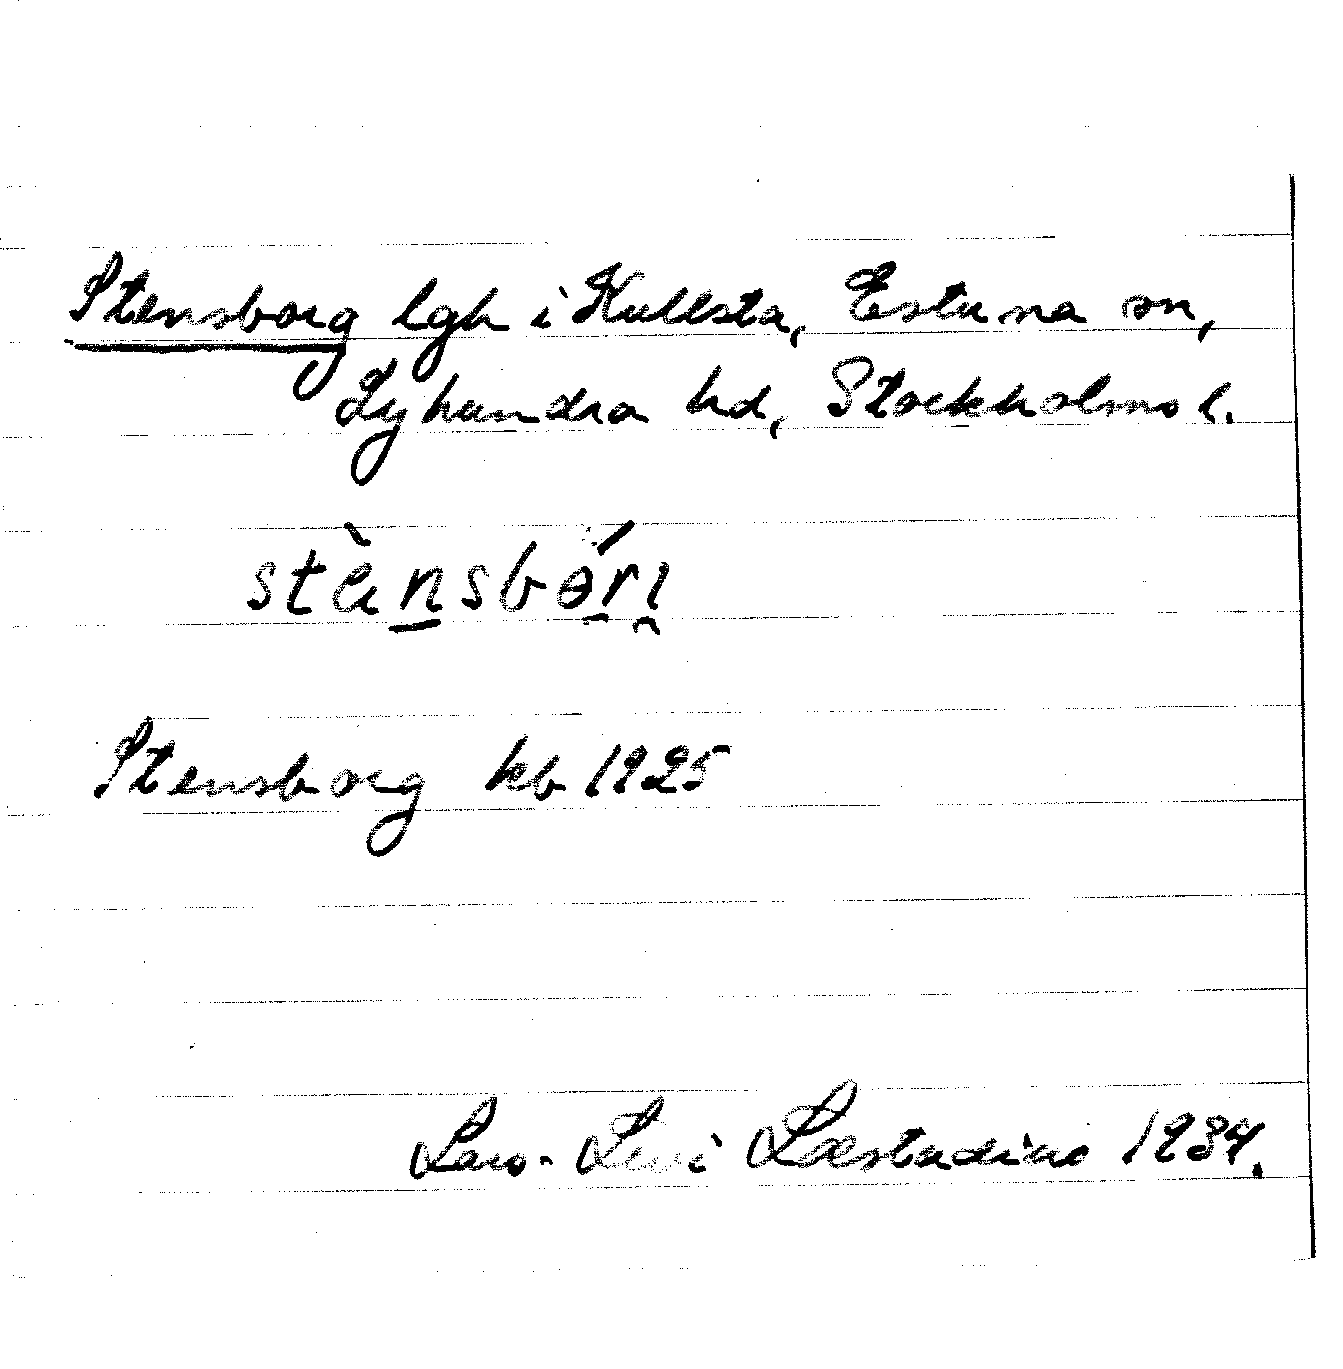 Stensborg lgh i Kullsta, Estuna sn,
Lyhundra hd, Stockholms l.
Stensborg kb 1925
Lars-Levi Læstadius 1934.